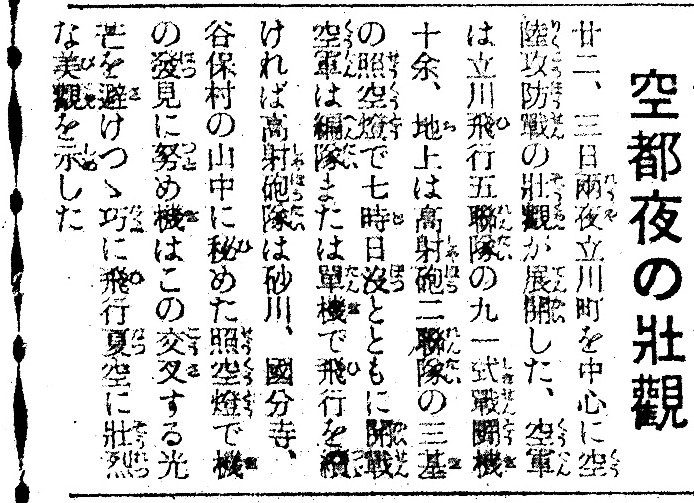 空都夜の壯觀
廿二、三日兩夜立川町を中心に空
陸攻防戰の壯觀が展開した、空軍
は立川飛行五聯隊の九一式戰鬪機
十余、地上は高射砲二聯隊の三基
の照空燈で七時日沒とともに開戰
空軍は編隊または單機で飛行を續
ければ高射砲隊は砂川、國分寺、
谷保村の山中に秘めた照空燈で機
の發見に努め機はこの交叉する光
芒を避けつゝ巧に飛行夏空に壯烈
な美觀を示した